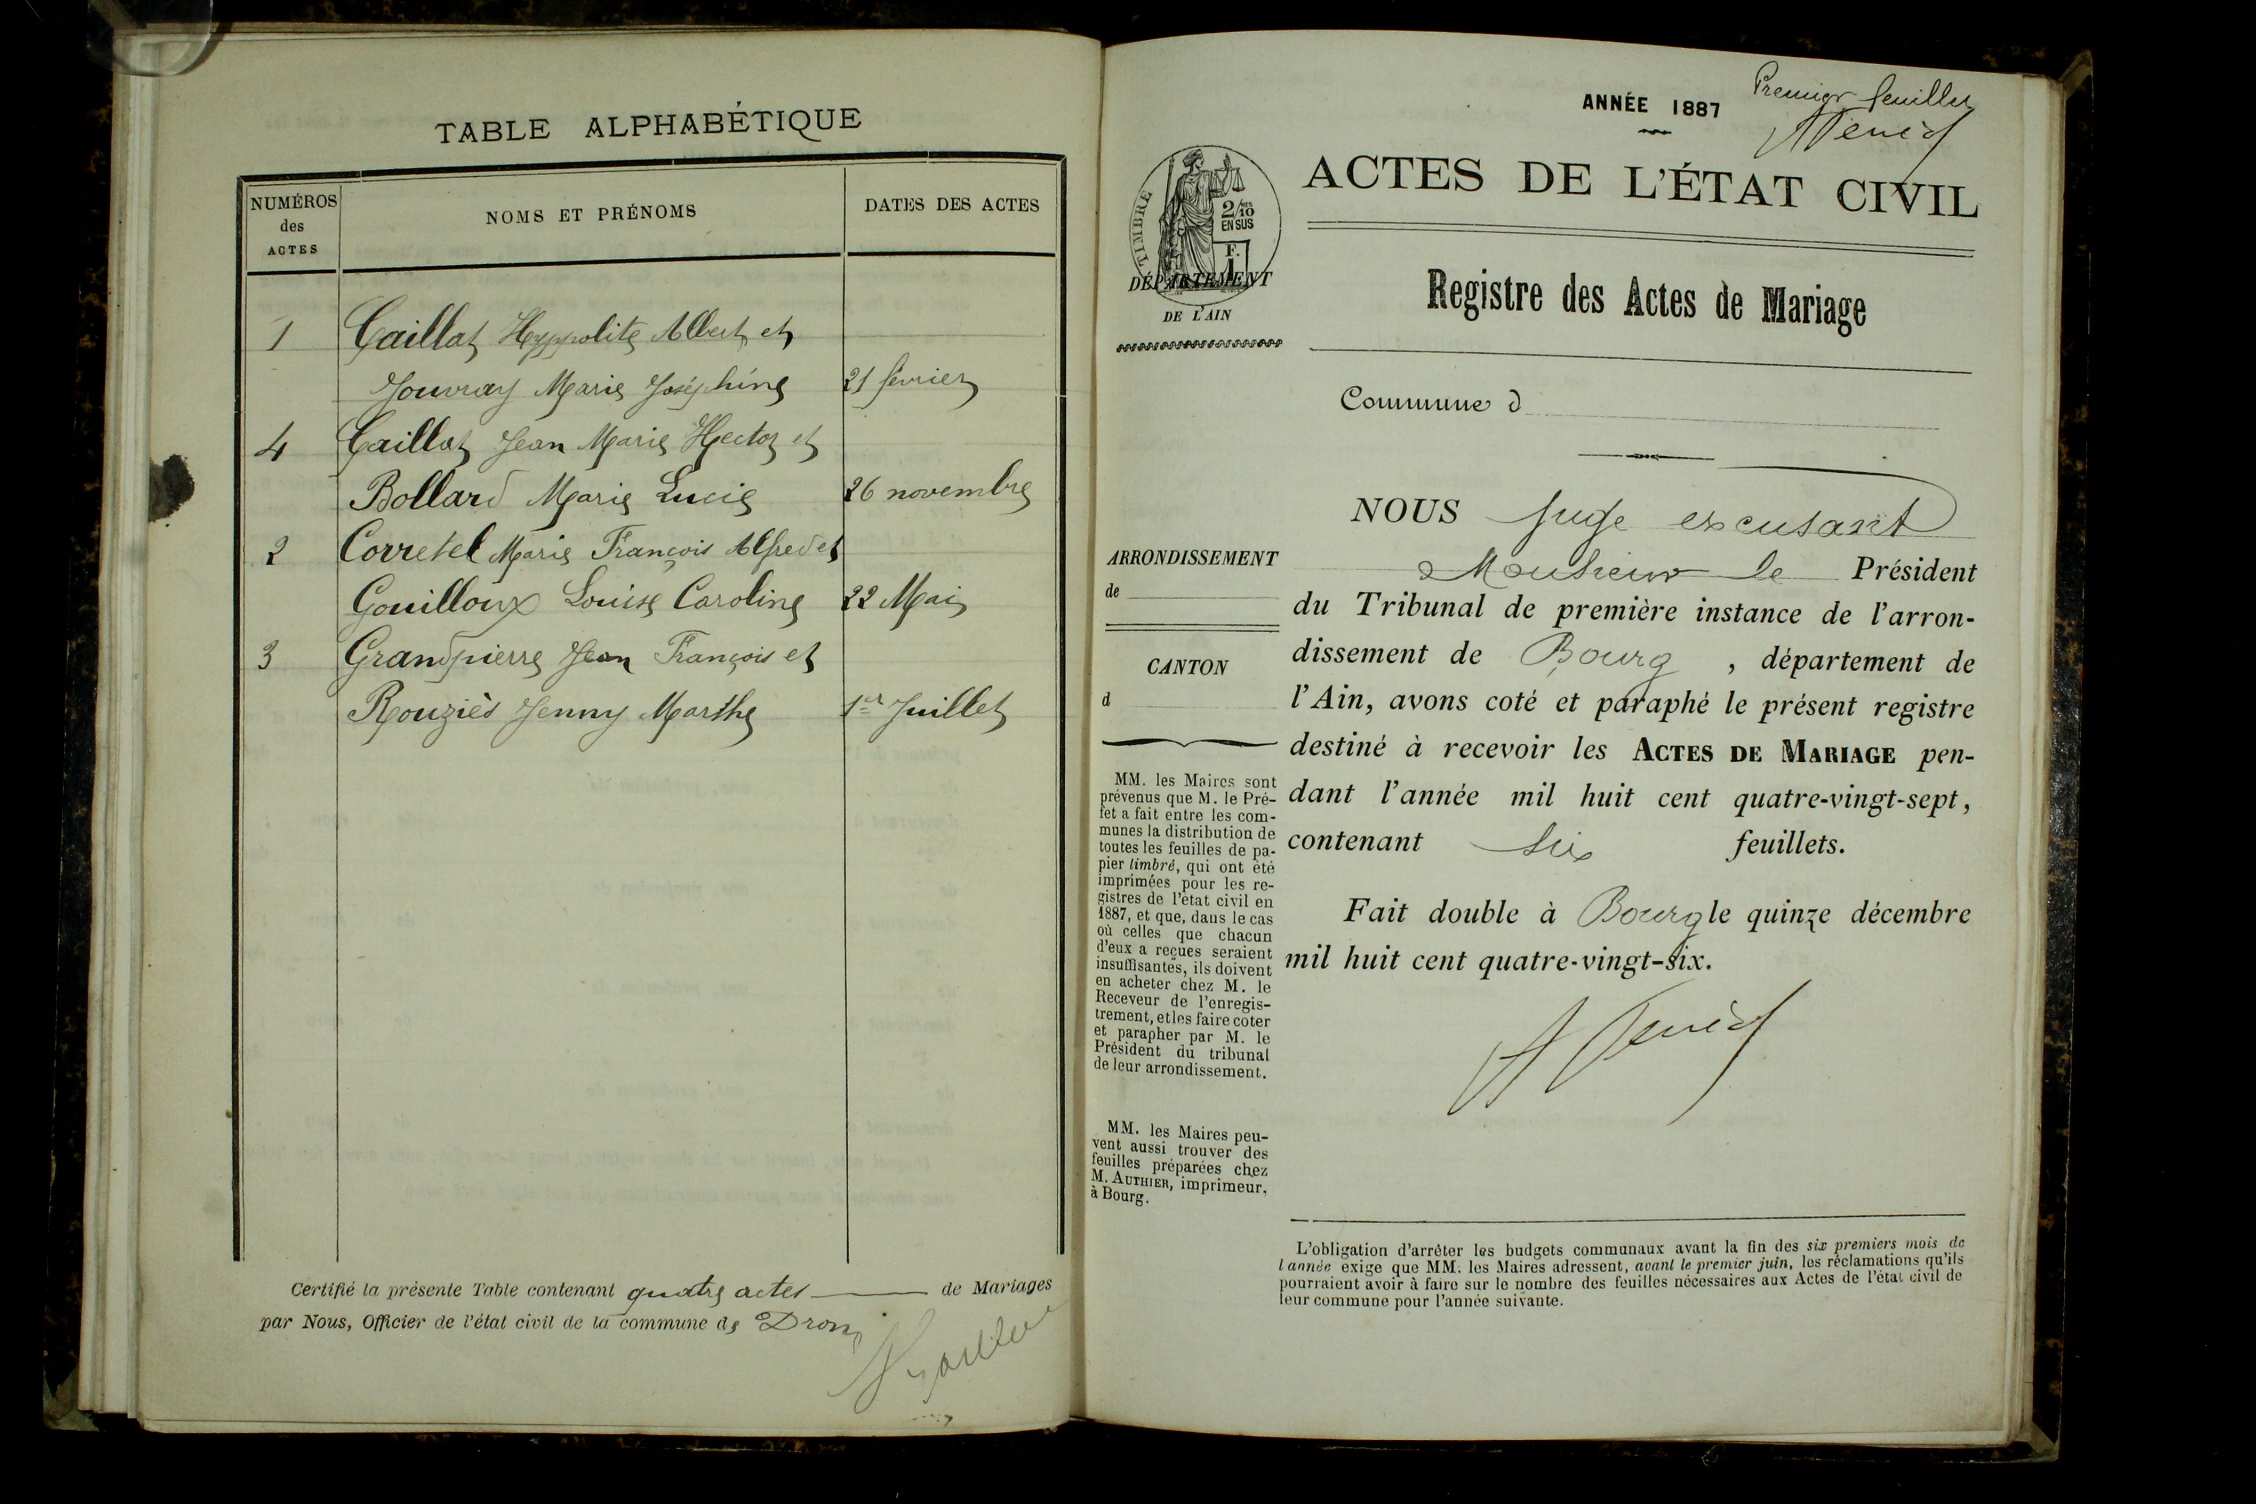 TABLE ALPHABÉTIQUE
NUMÉROS des ACTES
NOMS ET PRÉNOMS
DATES DES ACTES
1 Caillat Hyppolite Albert et
Jouvray Marie Joséphine 21 février
4 Caillat Jean Marie Hector et
Bollard Marie Lucie 26 novembre
2 Corretel Marie François Alfred et
Gouilloux Louise Caroline 22 Mai
3 Grandpierre Jean François et
Rouziès Jenny Marthe 1er Juillet
Certifié la présente Table contenant quatre actes de Mariages
par Nous, Officier de l'état civil de la commune de Drom
ANNÉE 1887
Premier feuillet
ACTES DE L'ÉTAT CIVIL
TIMBRE
2/10 EN SUS
F. 1
DÉPARTEMENT
DE L'AIN
Registre des Actes de Mariage
Commune d
ARRONDISSEMENT
de
CANTON
d
MM. les Maires sont
prévenus que M. le Pré-
fet a fait entre les com-
munes la distribution de
toutes les feuilles de pa-
pier timbré, qui ont été
imprimées pour les re-
gistres de l'état civil en
1887, et que, dans le cas
où celles que chacun
d'eux a reçues seraient
insuffisantes, ils doivent
en acheter chez M. le
Receveur de l'enregis-
trement, et les faire coter
et parapher par M. le
Président du tribunal
de leur arrondissement.
MM. les Maires peu-
vent aussi trouver des
feuilles préparées chez
M. AUTHIER, imprimeur,
à Bourg.
NOUS Juge excusant
Monsieur le Président
du Tribunal de première instance de l'arron-
dissement de Bourg, département de
l'Ain, avons coté et paraphé le présent registre
destiné à recevoir les ACTES DE MARIAGE pen-
dant l'année mil huit cent quatre-vingt-sept,
contenant six feuillets.
Fait double à Bourg le quinze décembre
mil huit cent quatre-vingt-six.
L'obligation d'arrêter les budgets communaux avant la fin des six premiers mois de
l'année exige que MM. les Maires adressent, avant le premier juin, les réclamations qu'ils
pourraient avoir à faire sur le nombre des feuilles nécessaires aux Actes de l'état civil de
leur commune pour l'année suivante.